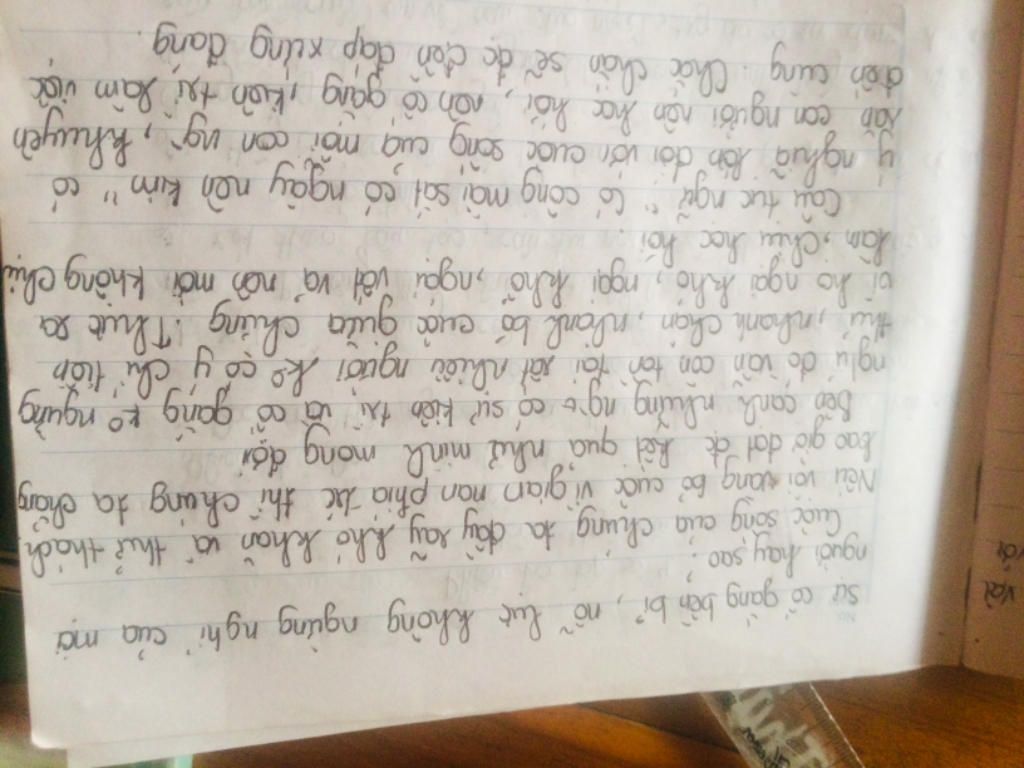 sự cố gắng bền bỉ, nỗ lực không ngừng nghỉ của mọi
người hay sao,
Cuộc sống của chúng ta đầy rẫy khó khăn và thử thách.
Nếu vội vàng bỏ cuộc vì gian nan phía trc thì chúng ta chẳng
bao giờ đạt đc kết quả như mình mong đợi
Bên cạnh những ng` có sự kiên trì và cố gắng ko ngừng
nghỉ đó vẫn còn tồn tại rất nhiều người ko có ý chí tiến
thủ, nhanh chán, nhanh bỏ cuộc giữa chừng. Thực ra
vì họ ngại khó, ngại khổ, ngại vất vả nên mới không chịu
làm, chịu học hỏi.
Câu tục ngữ "Có công mài sắt có ngày nên kim" có
ý nghĩa lớn đối với cuộc sống của mỗi con ng`, khuyên
răn con người nên học hỏi, nên cố gắng, kiên trì làm việc
đến cùng. Chắc chắn sẽ đc đền đáp xứng đáng.